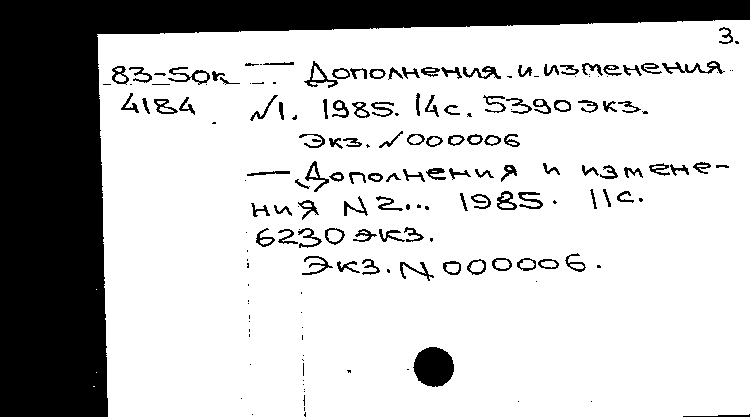 3.
83-50к — Дополнения и изменения
4184 N1. 1985. 14с. 5390экз.
Экз. N000006
— Дополнения и измене-
ния N2... 1985. 11с.
6230экз.
Экз. N000006.